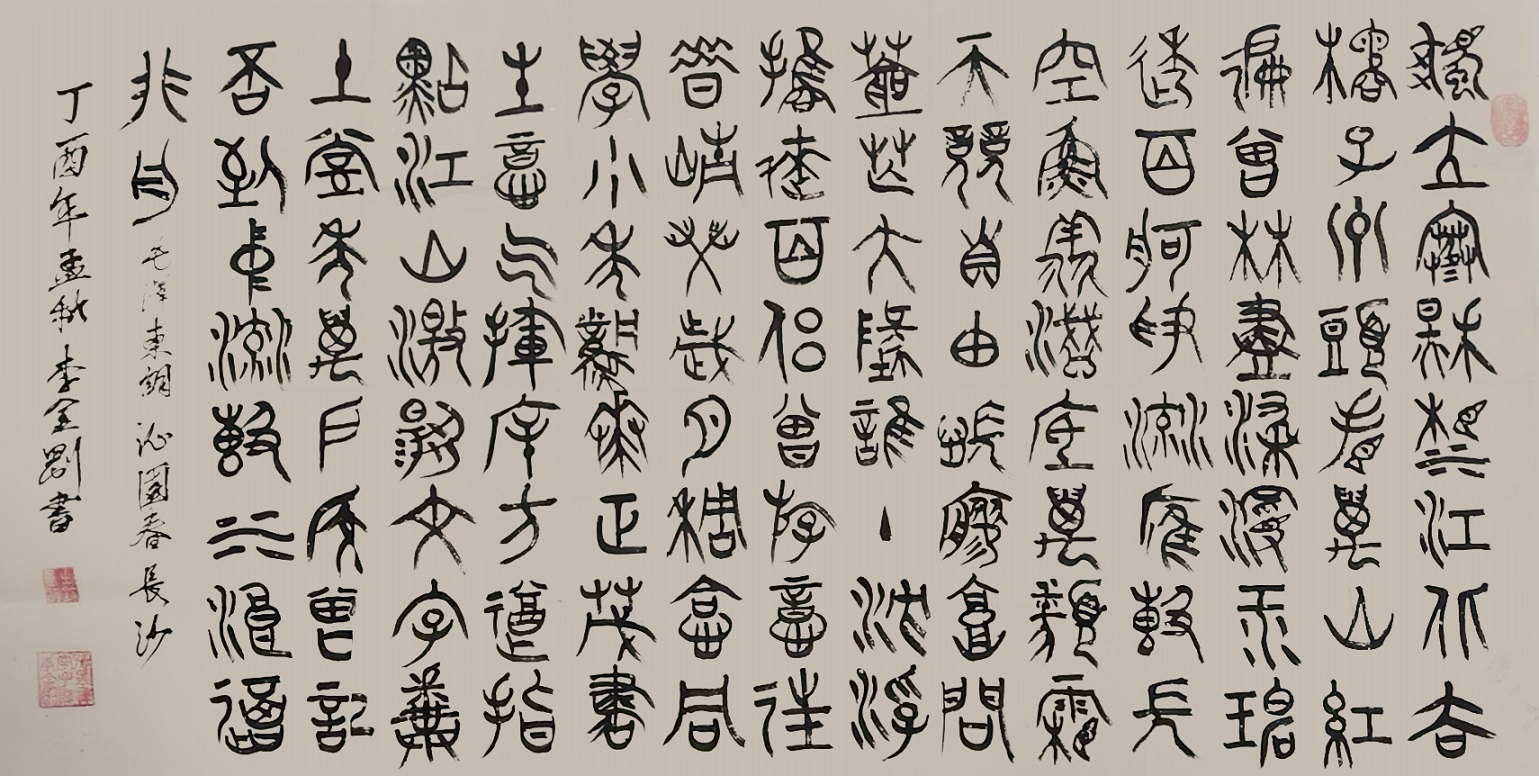 獨立寒秋湘江北去
橘子洲頭看萬山紅
遍曾林盡染漫江碧
透百舸爭流鷹擊長
空魚翔淺底萬類霜
天競自由悵寥廓問
蒼茫大地誰主沈浮
攜來百侶曾游憶往
昔崢嶸歲月稠恰同
學少年風華正茂書
生意气揮斥方遒指
點江山激揚文字糞
土當年萬戶侯曾記
否到中流擊水浪遏
飛舟 毛澤東詞 沁園春 長沙
丁酉年孟秋 李金剛書